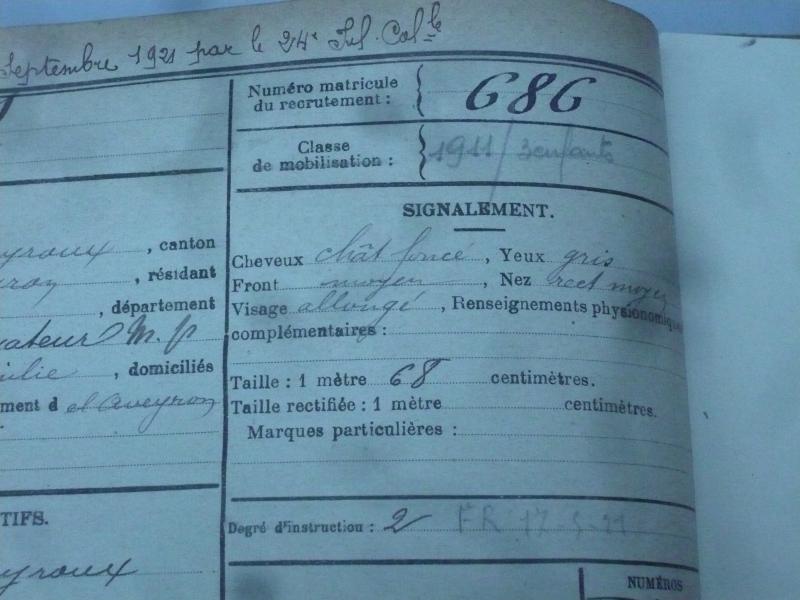 Septembre 1921 par le 24e Inf. Colle
Numéro matricule
du recrutement : 686
Classe
de mobilisation : 1911 / 3 enfants
SIGNALEMENT.
, canton
Cheveux chât foncé , Yeux gris
, résidant
Front moyen , Nez rect moyen
, département
Visage allongé , Renseignements physionomiques
complémentaires :
M. p
, domiciliés
Taille : 1 mètre 68 centimètres.
ment d el aveyron
Taille rectifiée : 1 mètre centimètres.
Marques particulières :
TIFS.
Degré d'instruction : 2 FR
yroux
NUMÉROS